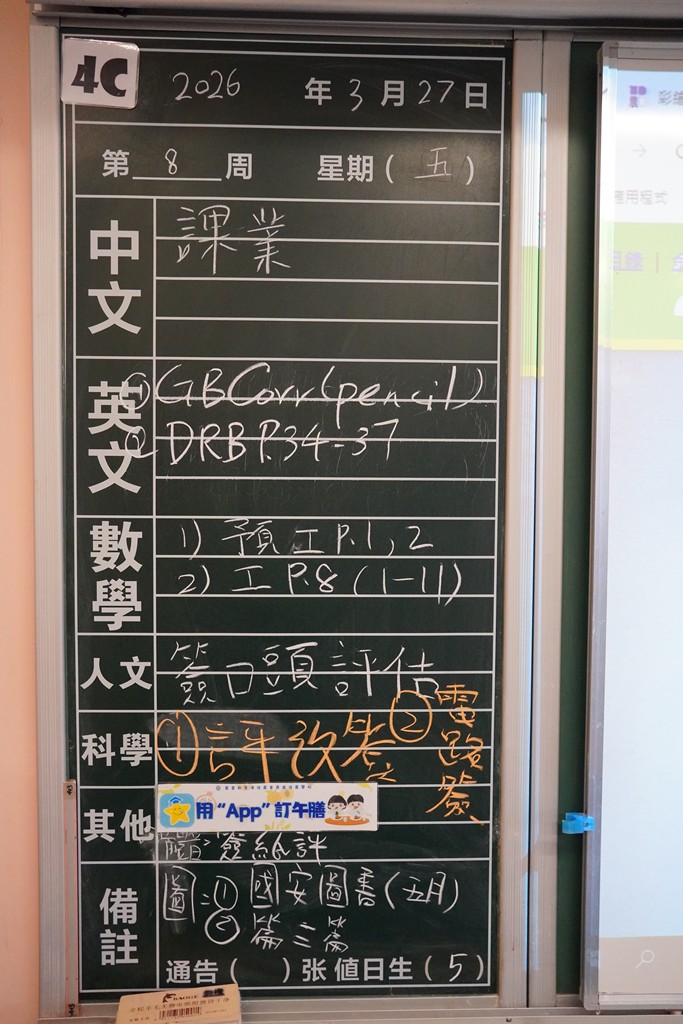 4C
2026 年 3 月 27 日
第 8 周 星期 ( 五 )
中文
課業
英文
① GBCorr (pencil)
② DRB P.34-37
數學
1) 預工 P.1, 2
2) 工 P.8 (1-11)
人文
簽口頭評估
科學
① 評改簽
② 電路簽
其他
用 “App” 訂午膳
簽紙評
備註
圖: ① 國安圖書 (五月)
②
通告 ( ) 张 值日生 ( 5 )
應用程式
目錄